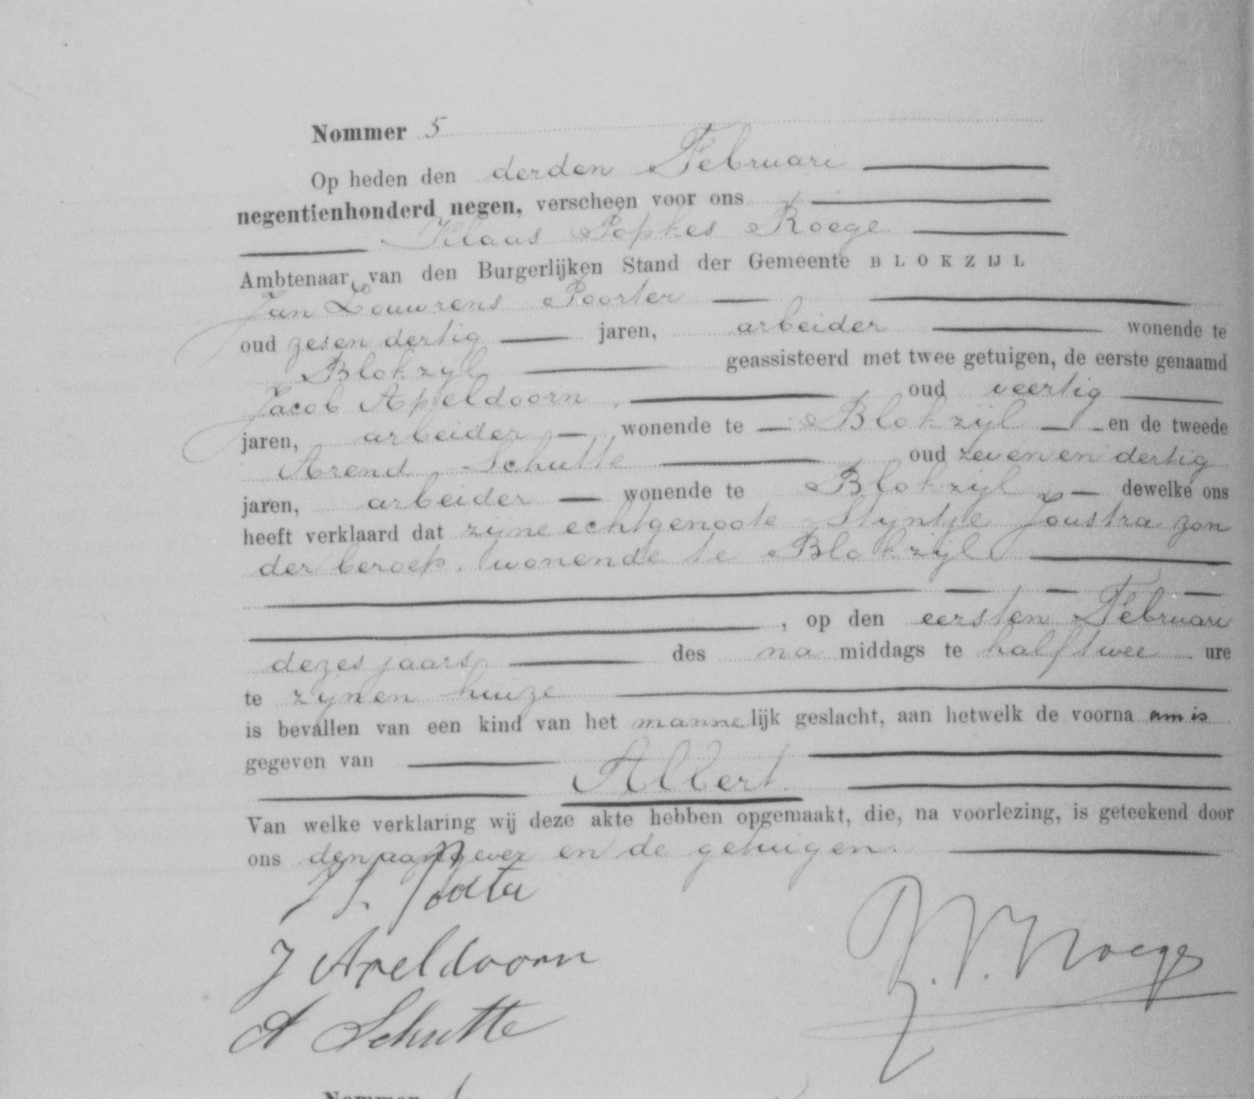 Nommer 5
Op heden den derden Februari
negentienhonderd negen, verscheen voor ons
Klaas Popkes Roege
Ambtenaar van den Burgerlijken Stand der Gemeente BLOKZIJL
Jan Louwrens Poorter
oud zesendertig jaren, arbeider wonende te
Blokzyl geassisteerd met twee getuigen, de eerste genaamd
Jacob Apeldoorn, oud veertig
jaren, arbeider, wonende te Blokzyl en de tweede
Arend Schutte oud zevenendertig
jaren, arbeider wonende te Blokzyl dewelke ons
heeft verklaard dat zyne echtgenoote Styntje Joustra zon
der beroep, wonende te Blokzyl
, op den eersten Februari
dezes jaars, des na middags te half twee ure
te zynen huize
is bevallen van een kind van het mannelijk geslacht, aan hetwelk de voornaam is
gegeven van
Albert.
Van welke verklaring wij deze akte hebben opgemaakt, die, na voorlezing, is geteekend door
ons den aangever en de getuigen.
J L Poorter
J Apeldoorn
A Schutte
Roege
Nommer 6